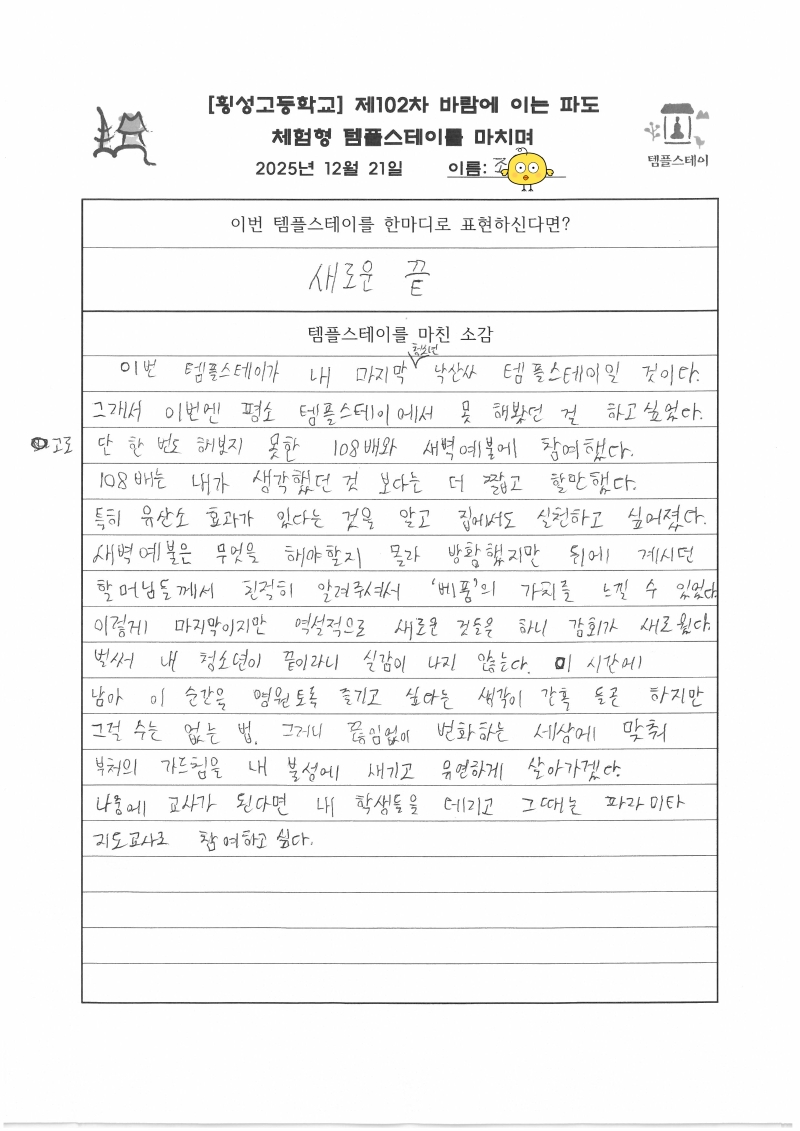 [횡성고등학교] 제102차 바람에 이는 파도
체험형 템플스테이를 마치며
2025년 12월 21일 이름: 조
템플스테이
이번 템플스테이를 한마디로 표현하신다면?
새로운 끝
템플스테이를 마친 소감
청소년
이번 템플스테이가 내 마지막 낙산사 템플스테이일 것이다.
그래서 이번엔 평소 템플스테이에서 못 해봤던 걸 하고싶었다.
고로 단 한 번도 해보지 못한 108배와 새벽예불에 참여했다.
108배는 내가 생각했던 것 보다는 더 짧고 할만했다.
특히 유산소 효과가 있다는 것을 알고 집에서도 실천하고 싶어졌다.
새벽예불은 무엇을 해야할지 몰라 방황했지만 뒤에 계시던
할머님들께서 친절히 알려주셔서 '베풂'의 가치를 느낄 수 있었다
이렇게 마지막이지만 역설적으로 새로운 것들을 하니 감회가 새로웠다.
벌써 내 청소년이 끝이라니 실감이 나지 않는다. 이 시간에
남아 이 순간을 영원토록 즐기고 싶다는 생각이 간혹 들곤 하지만
그럴 수는 없는 법. 그러니 끊임없이 변화하는 세상에 맞춰
부처의 가르침을 내 불성에 새기고 유연하게 살아가겠다.
나중에 교사가 된다면 내 학생들을 데리고 그때는 파라미타
지도교사로 참여하고 싶다.